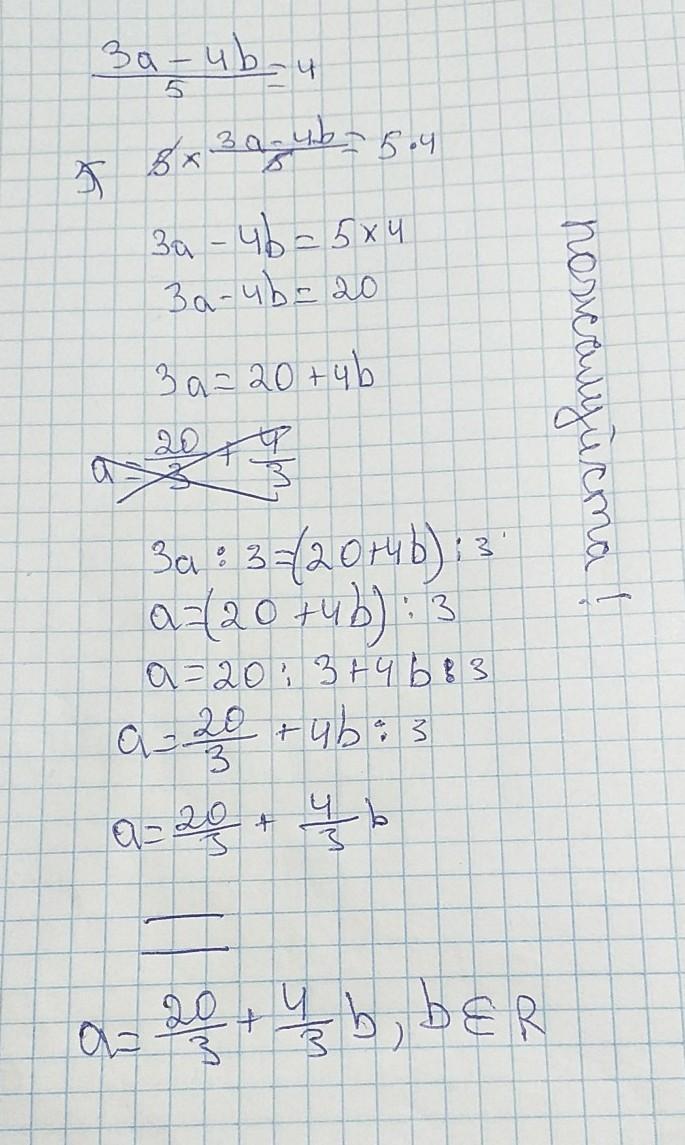 3a - 4b / 5 = 4
5 5 × 3a - 4b / 5 = 5 · 4
3a - 4b = 5 × 4
3a - 4b = 20
3a = 20 + 4b
a = 20/3 + 4/3
3a : 3 = (20 + 4b) : 3
a = (20 + 4b) : 3
a = 20 : 3 + 4b : 3
a = 20/3 + 4b : 3
a = 20/3 + 4/3 b
a = 20/3 + 4/3 b, b ∈ R
пожалуйста!